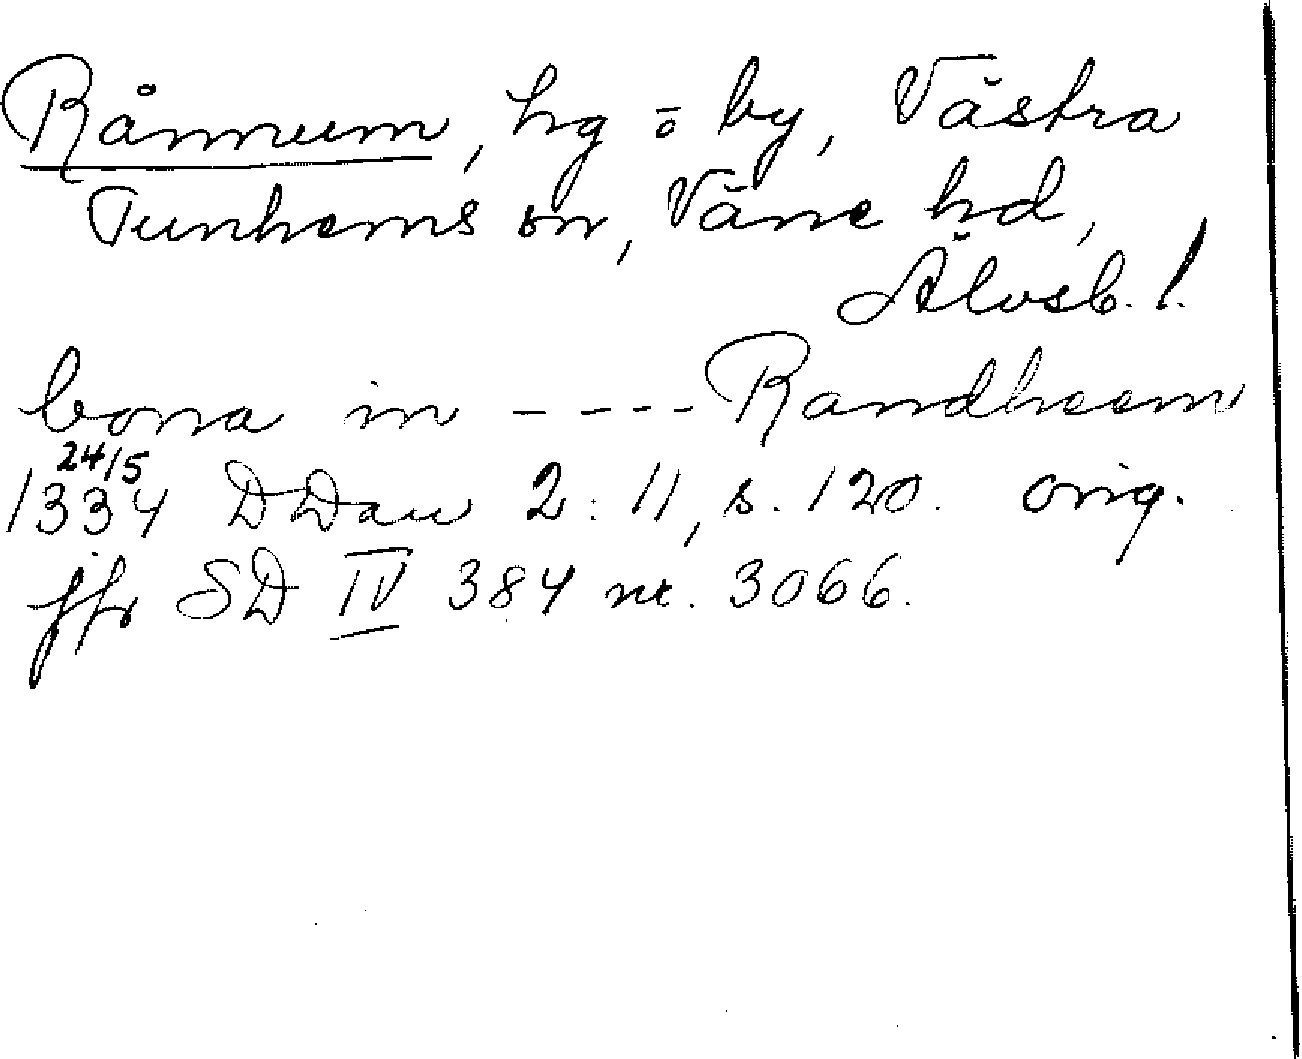 Rånnum, hg ō by, Västra
Tunhems sn, Väne hd,
Älvsb. l.
bona in ---- Randheem
24/5
1334 DDan 2: 11, s. 120. orig.
jfr SD IV 384 nr. 3066.